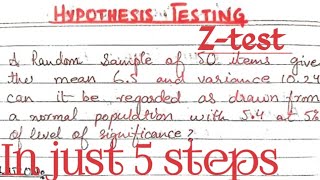 HYPOTHESIS TESTING
Z-test
A Random Sample of 50 items give
the mean 6.5 and variance 10.24
can it be regarded as drawn from
a normal population with 5.4 at 5%
of level of significance?
In just 5 steps